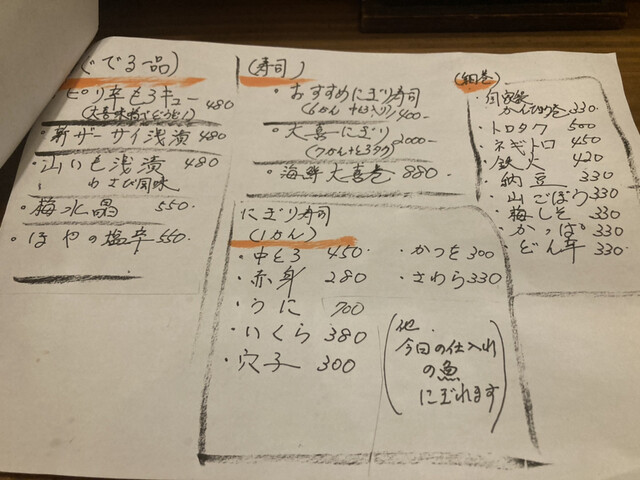 でる一品)
ピリ辛もろキュー 480
・新ザーサイ浅漬 480
・山いも浅漬 480
わさび風味
・梅水晶 550.
・ほやの塩辛 550
(寿司)
・おすすめにぎり寿司
・大喜にぎり
・海鮮大喜巻 880.
にぎり寿司
(1かん)
・中とろ 450.
・赤身 280
・うに 700
・いくら 380
・穴子 300
・かつを 300
・さわら 330
(他.
今日の仕入れ
の魚
にぎれます)
(細巻)
かんぴょう巻 330.
・トロタク 500
・ネギトロ 450
・鉄火 420
・納豆 330
・山ごぼう 330
・梅しそ 330
・かっぱ 330
330.